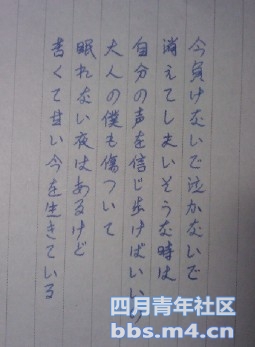 今負けないで泣かないで
消えてしまいそうな時は
自分の声を信じ歩けばいいの
大人の僕も傷ついて
眠れない夜はあるけど
苦くて甘い今を生きている
四月青年社区
bbs.m4.cn